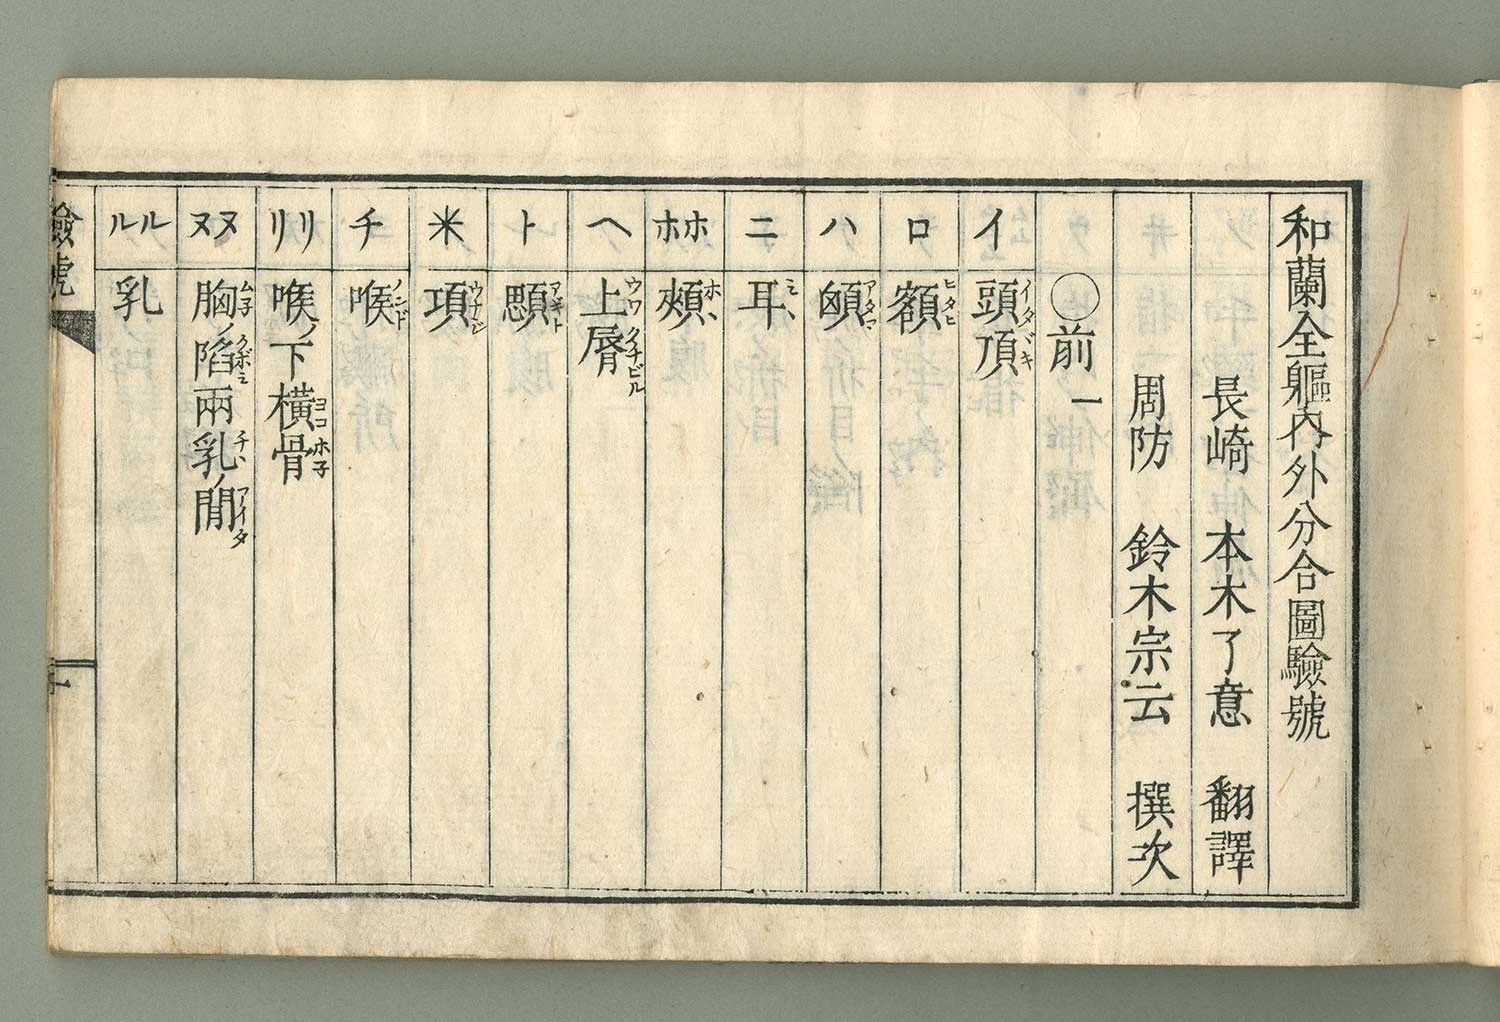 和蘭全軀內外分合圖驗號
長崎 本木了意 翻譯
周防 鈴木宗云 撰次
〇前一
イ 頭頂イタダキ
ロ 額ヒタヒ
ハ 顖アタマ
ニ 耳ミヽ
ホホ 頰ホヽ
ヘ 上脣ウワクチビル
ト 顋アギト
米 項ウナジ
チ 喉ノンド
リリ 喉ノ下橫骨ヨコホ子
ヌヌ 胸ム子ノ陷クボミ兩乳チヽノ間アイタ
ルル 乳
驗號